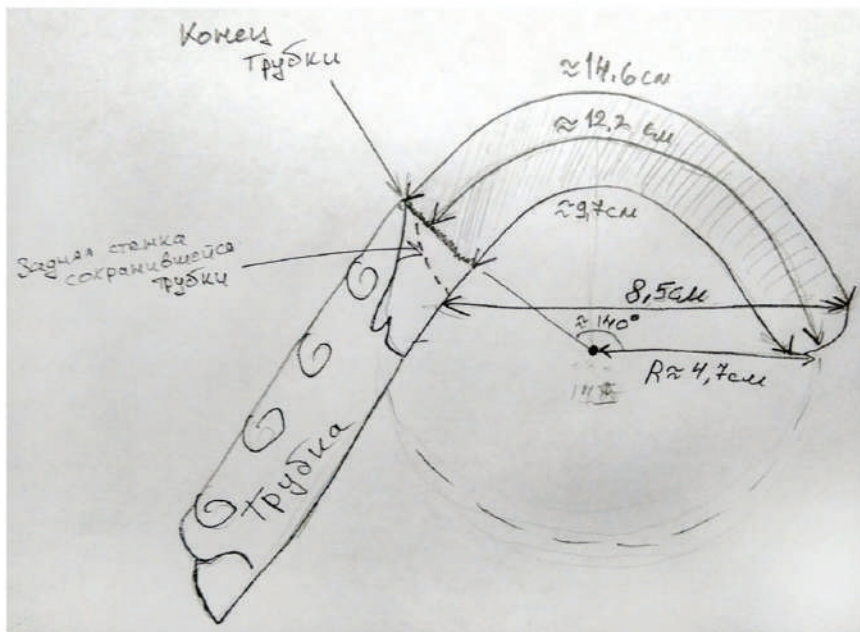 Конец
трубки
≈14,6см
≈12,2 см
≈9,7см
Задняя стенка
сохранившейся
трубки
8,5см
≈140°
R≈4,7см
Трубка